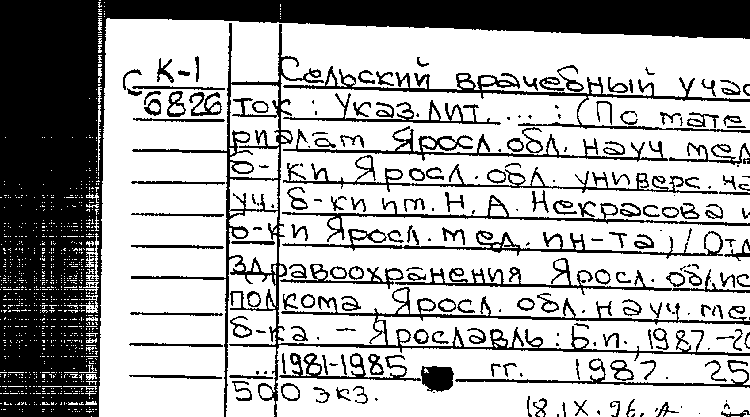 С К-1 Сельский врачебный учас
6826 ток : Указ. лит. ... : (По мате
риалам Яросл. обл. науч. мед.
б-ки, Яросл. обл. универс. на
уч. б-ки им. Н. А. Некрасова и
б-ки Яросл. мед. ин-та) / Отд.
здравоохранения Яросл. облис
полкома, Яросл. обл. науч. ме
б-ка. - Ярославль : Б.и., 1987. - 20
... 1981-1985 гг. 1987. 25
500 экз.
18.IX.96.